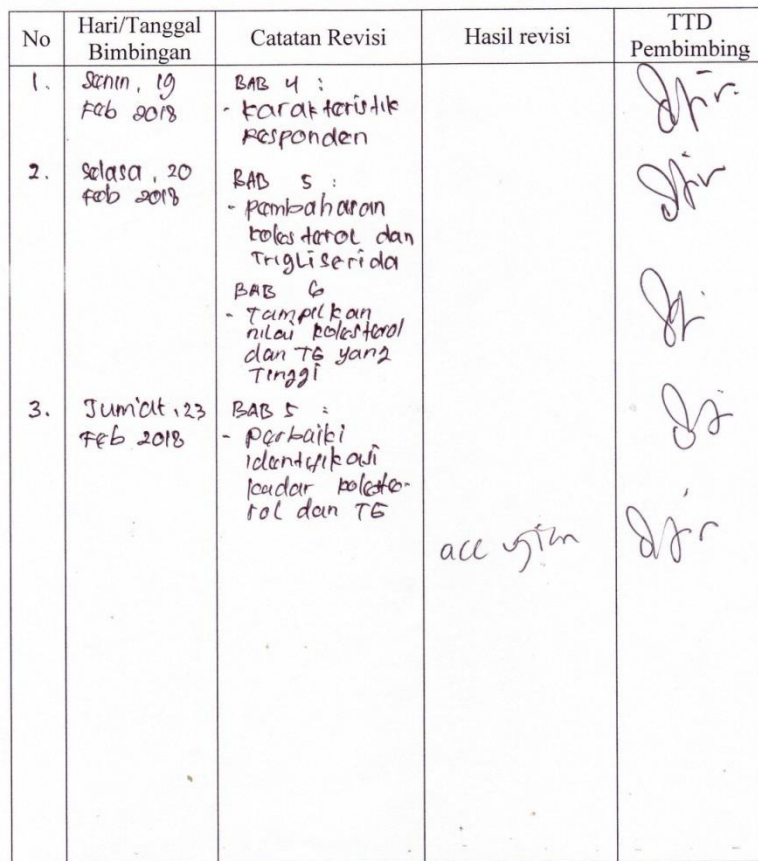 No Hari/Tanggal Bimbingan Catatan Revisi Hasil revisi TTD Pembimbing
1. Senin, 19 Feb 2018
BAB 4 :
- karakteristik
Responden
2. Selasa, 20 Feb 2018
BAB 5 :
- pembahasan
kolesterol dan
Trigliserida
BAB 6
- Tampilkan
nilai kolesterol
dan TG yang
Tinggi
3. Jum'at, 23 Feb 2018
BAB 5 :
- perbaiki
identifikasi
kadar koleste-
rol dan TG
acc ujian